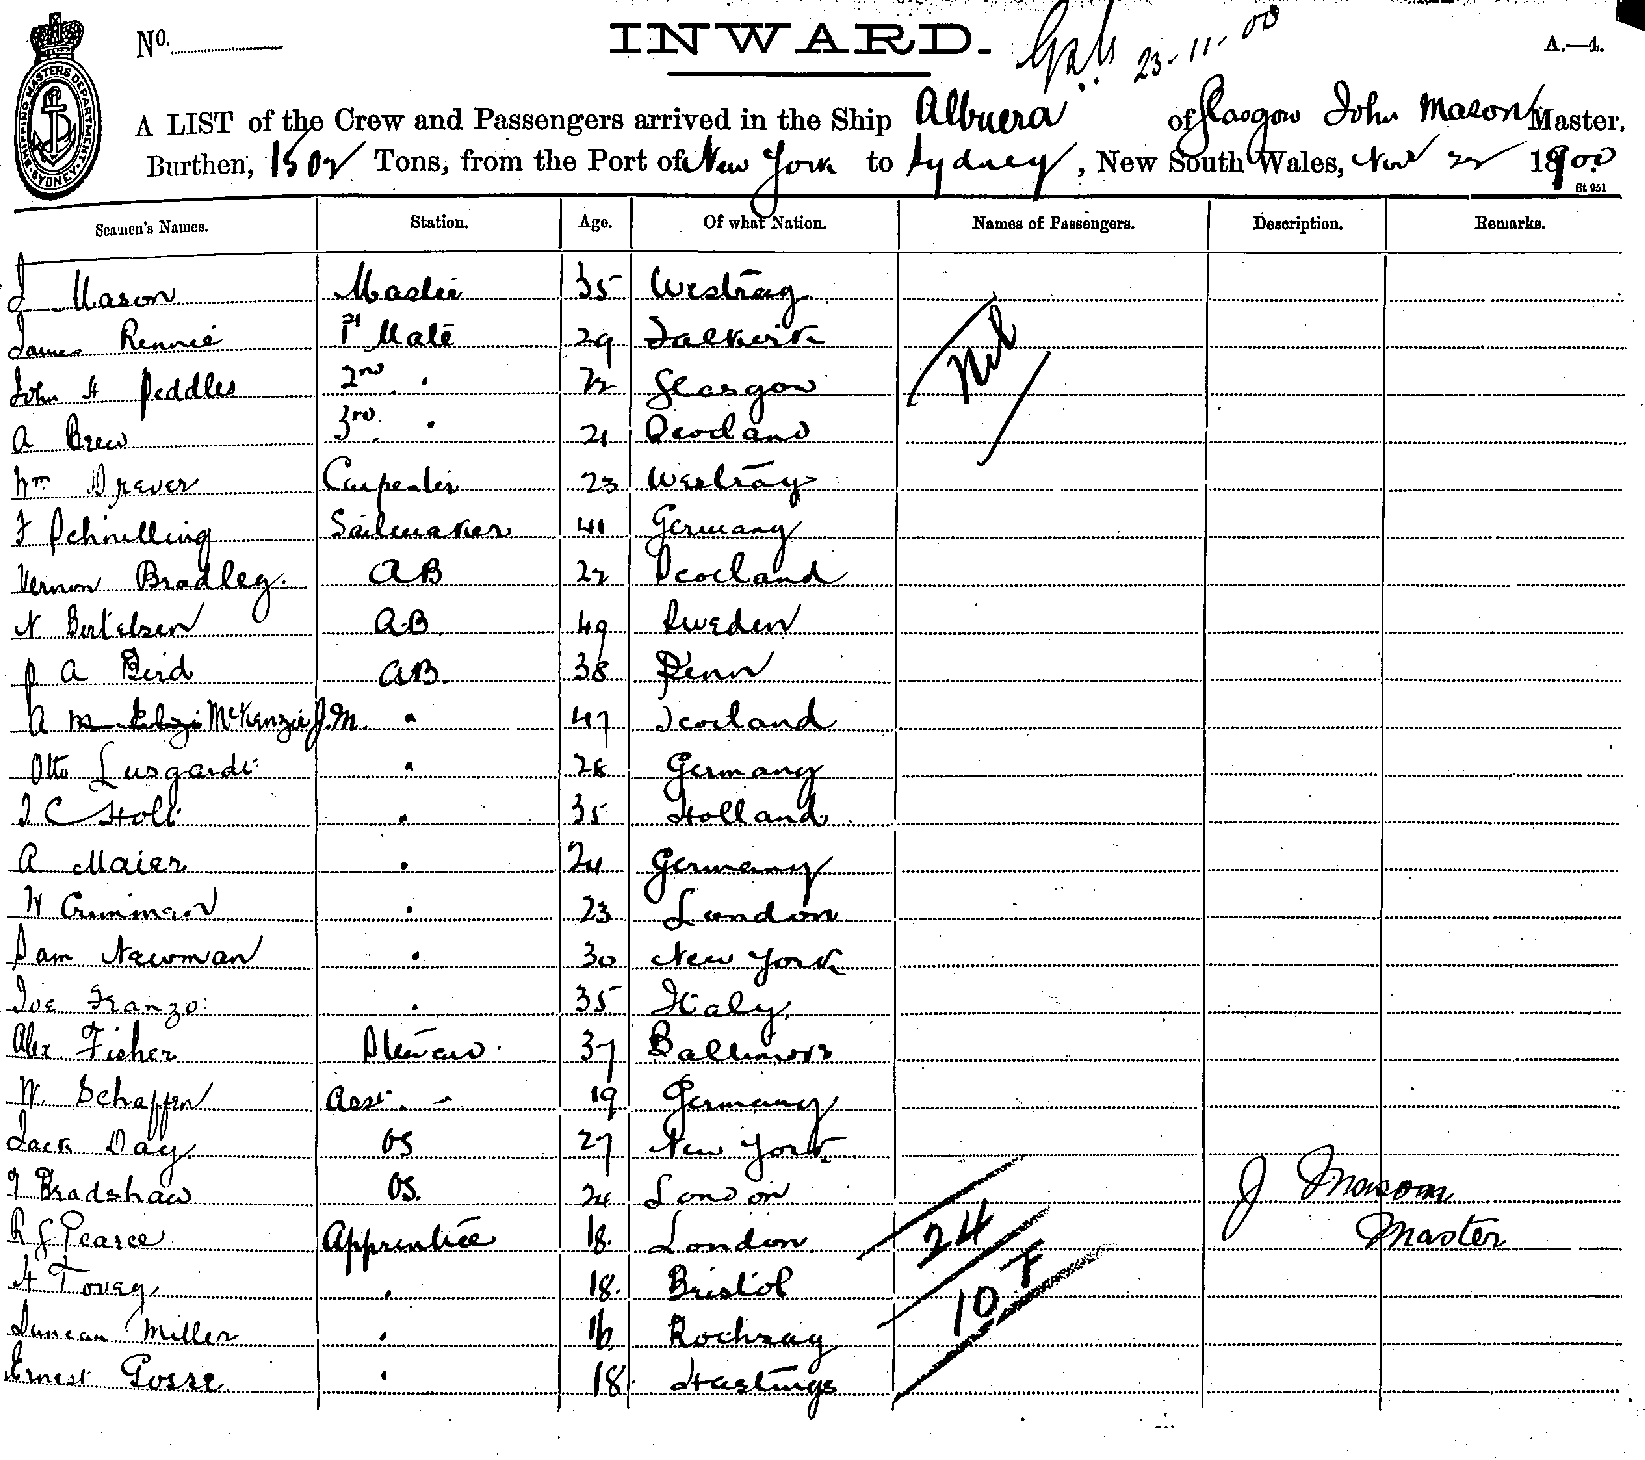 No.
INWARD.
23-11-00
A.—4.
SHIPPING MASTERS DEPARTMENT SYDNEY
A LIST of the Crew and Passengers arrived in the Ship Albuera of Glasgow John Mason Master,
Burthen, 1502 Tons, from the Port of New York to Sydney, New South Wales, Nov 22 1900
St 951
Seamen's Names. Station. Age. Of what Nation. Names of Passengers. Description. Remarks.
J Mason Master 35 Westray
James Rennie 1st Mate 29 Falkirk
Nil
John H Peddles 2nd " 22 Glasgow
A Brew 3rd " 21 Scotland
Wm Drever Carpenter 23 Westray
F Schnelling Sailmaker 41 Germany
Vernon Bradley. AB 22 Scotland
N Bertelsen AB 49 Sweden
P A Bird AB. 38 Penn
A McKenzie J.M. " 47 Scotland
Otto Lusgardt " 28 Germany
J C Holt " 35 Holland
A Maier " 24 Germany
W " 23 London
Sam Newman " 30 New York
Joe Franzo " 35 Italy
Alex Fisher Steward 37 Baltimore
W. Schaffer Asst. " 19 Germany
Jack Day OS 27 New York
J Bradshaw OS. 24 London
J Mason
R G Pearce Apprentice 18 London
24
Master
H Tovey " 18 Bristol
10 F
Duncan Miller " 16 Rothsay
Ernest Gosse " 18 Hastings